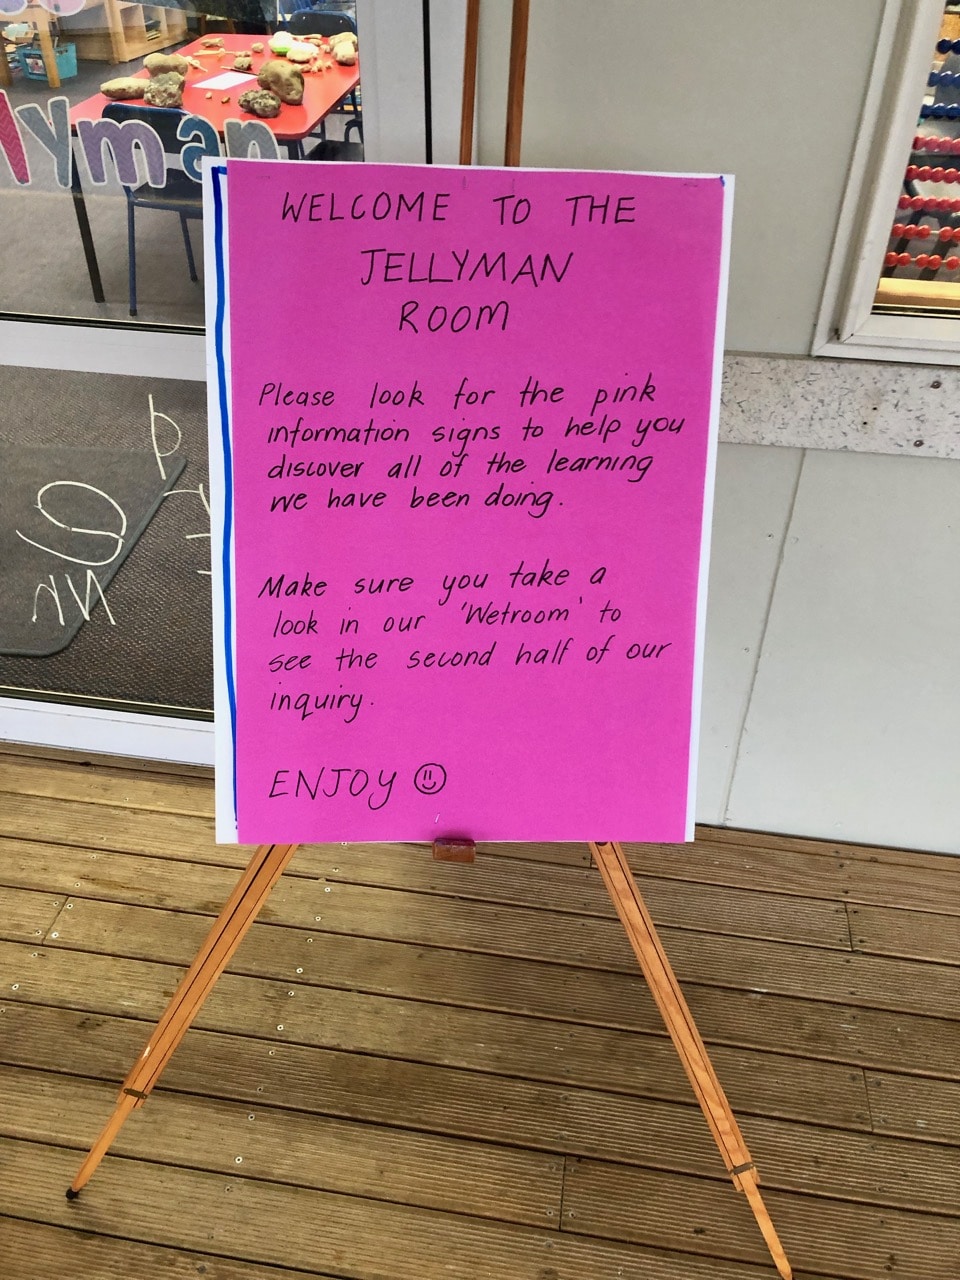 lyman
WELCOME TO THE
JELLYMAN
ROOM
Please look for the pink
information signs to help you
discover all of the learning
we have been doing.
Make sure you take a
look in our 'Wetroom' to
see the second half of our
inquiry.
ENJOY ☺